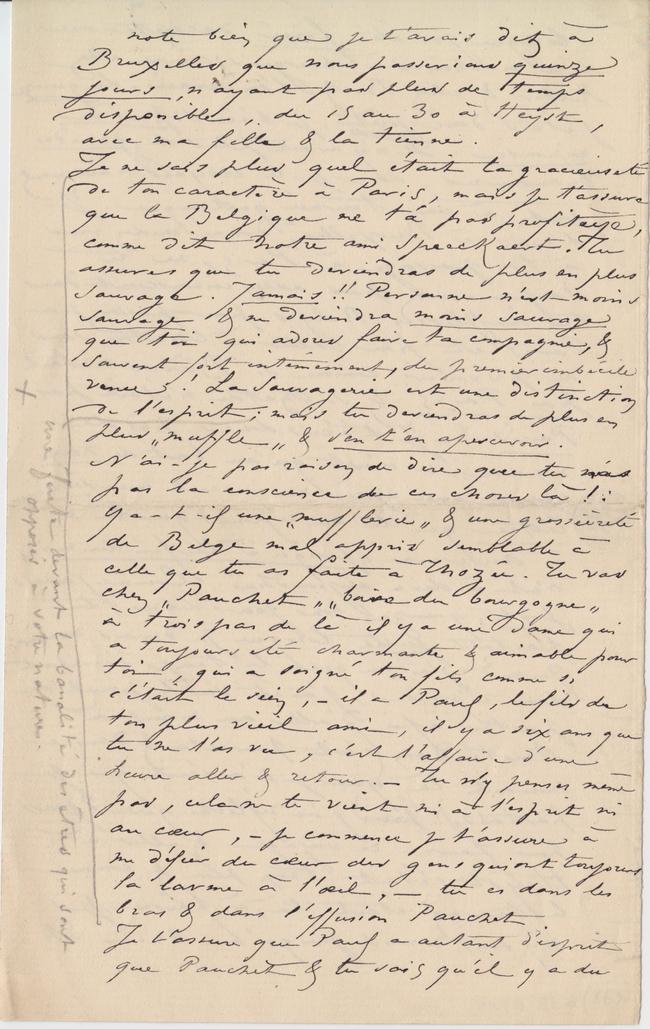 note bien que je t'avais dit à
Bruxelles que nous passerions quinze
jours, n'ayant pas plus de temps
disponible, du 15 au 30 à Heyst,
avec ma fille & la tienne.
Je ne sais plus quel était la gracieuseté
de ton caractère à Paris, mais je t'assure
que la Belgique ne t'a pas profitéïe,
comme dit notre ami Speeckaert. Tu
assures que tu deviendras de plus en plus
sauvage. Jamais !! Personne n'est moins
sauvage & ne deviendra moins sauvage
que toi qui adores faire ta compagnie, &
souvent fort intimement, du premier imbécile
venu ! La Sauvagerie est une distinction
de l'esprit ; mais tu deviendras de plus en
plus „muffle„ & s'en t'en apercevoir.
N'ai-je pas raison de dire que tu n'as
pas la conscience de ces choses là ! :
Y a-t-il une „muflerie„ & une grossièreté
de Belge mal appris semblable à
celle que tu as faite à Thozée. Tu vas
chez „Pauchet„ „boire du bourgogne„
à trois pas de là il y a une Dame qui
a toujours été charmante & aimable pour
toi, qui a soigné ton fils comme si
c'était le sien, – il a Paul, le fils de
ton plus vieil ami, il y a six ans que
tu ne l'as vu, c'est l'affaire d'une
heure aller & retour. – Tu n'y penses même
pas, cela ne te vient ni à l'esprit ni
au cœur, – je commence je t'assure à
me défier du cœur des gens qui ont toujours
la larme à l'œil, – tu es dans les
bras & dans l'effusion Pauchet
Je t'assure que Paul a autant d'esprit
que Pauchet & tu sais qu'il y a du
+ une fuite devant la banalité des êtres qui sont
opposés à votre nature.